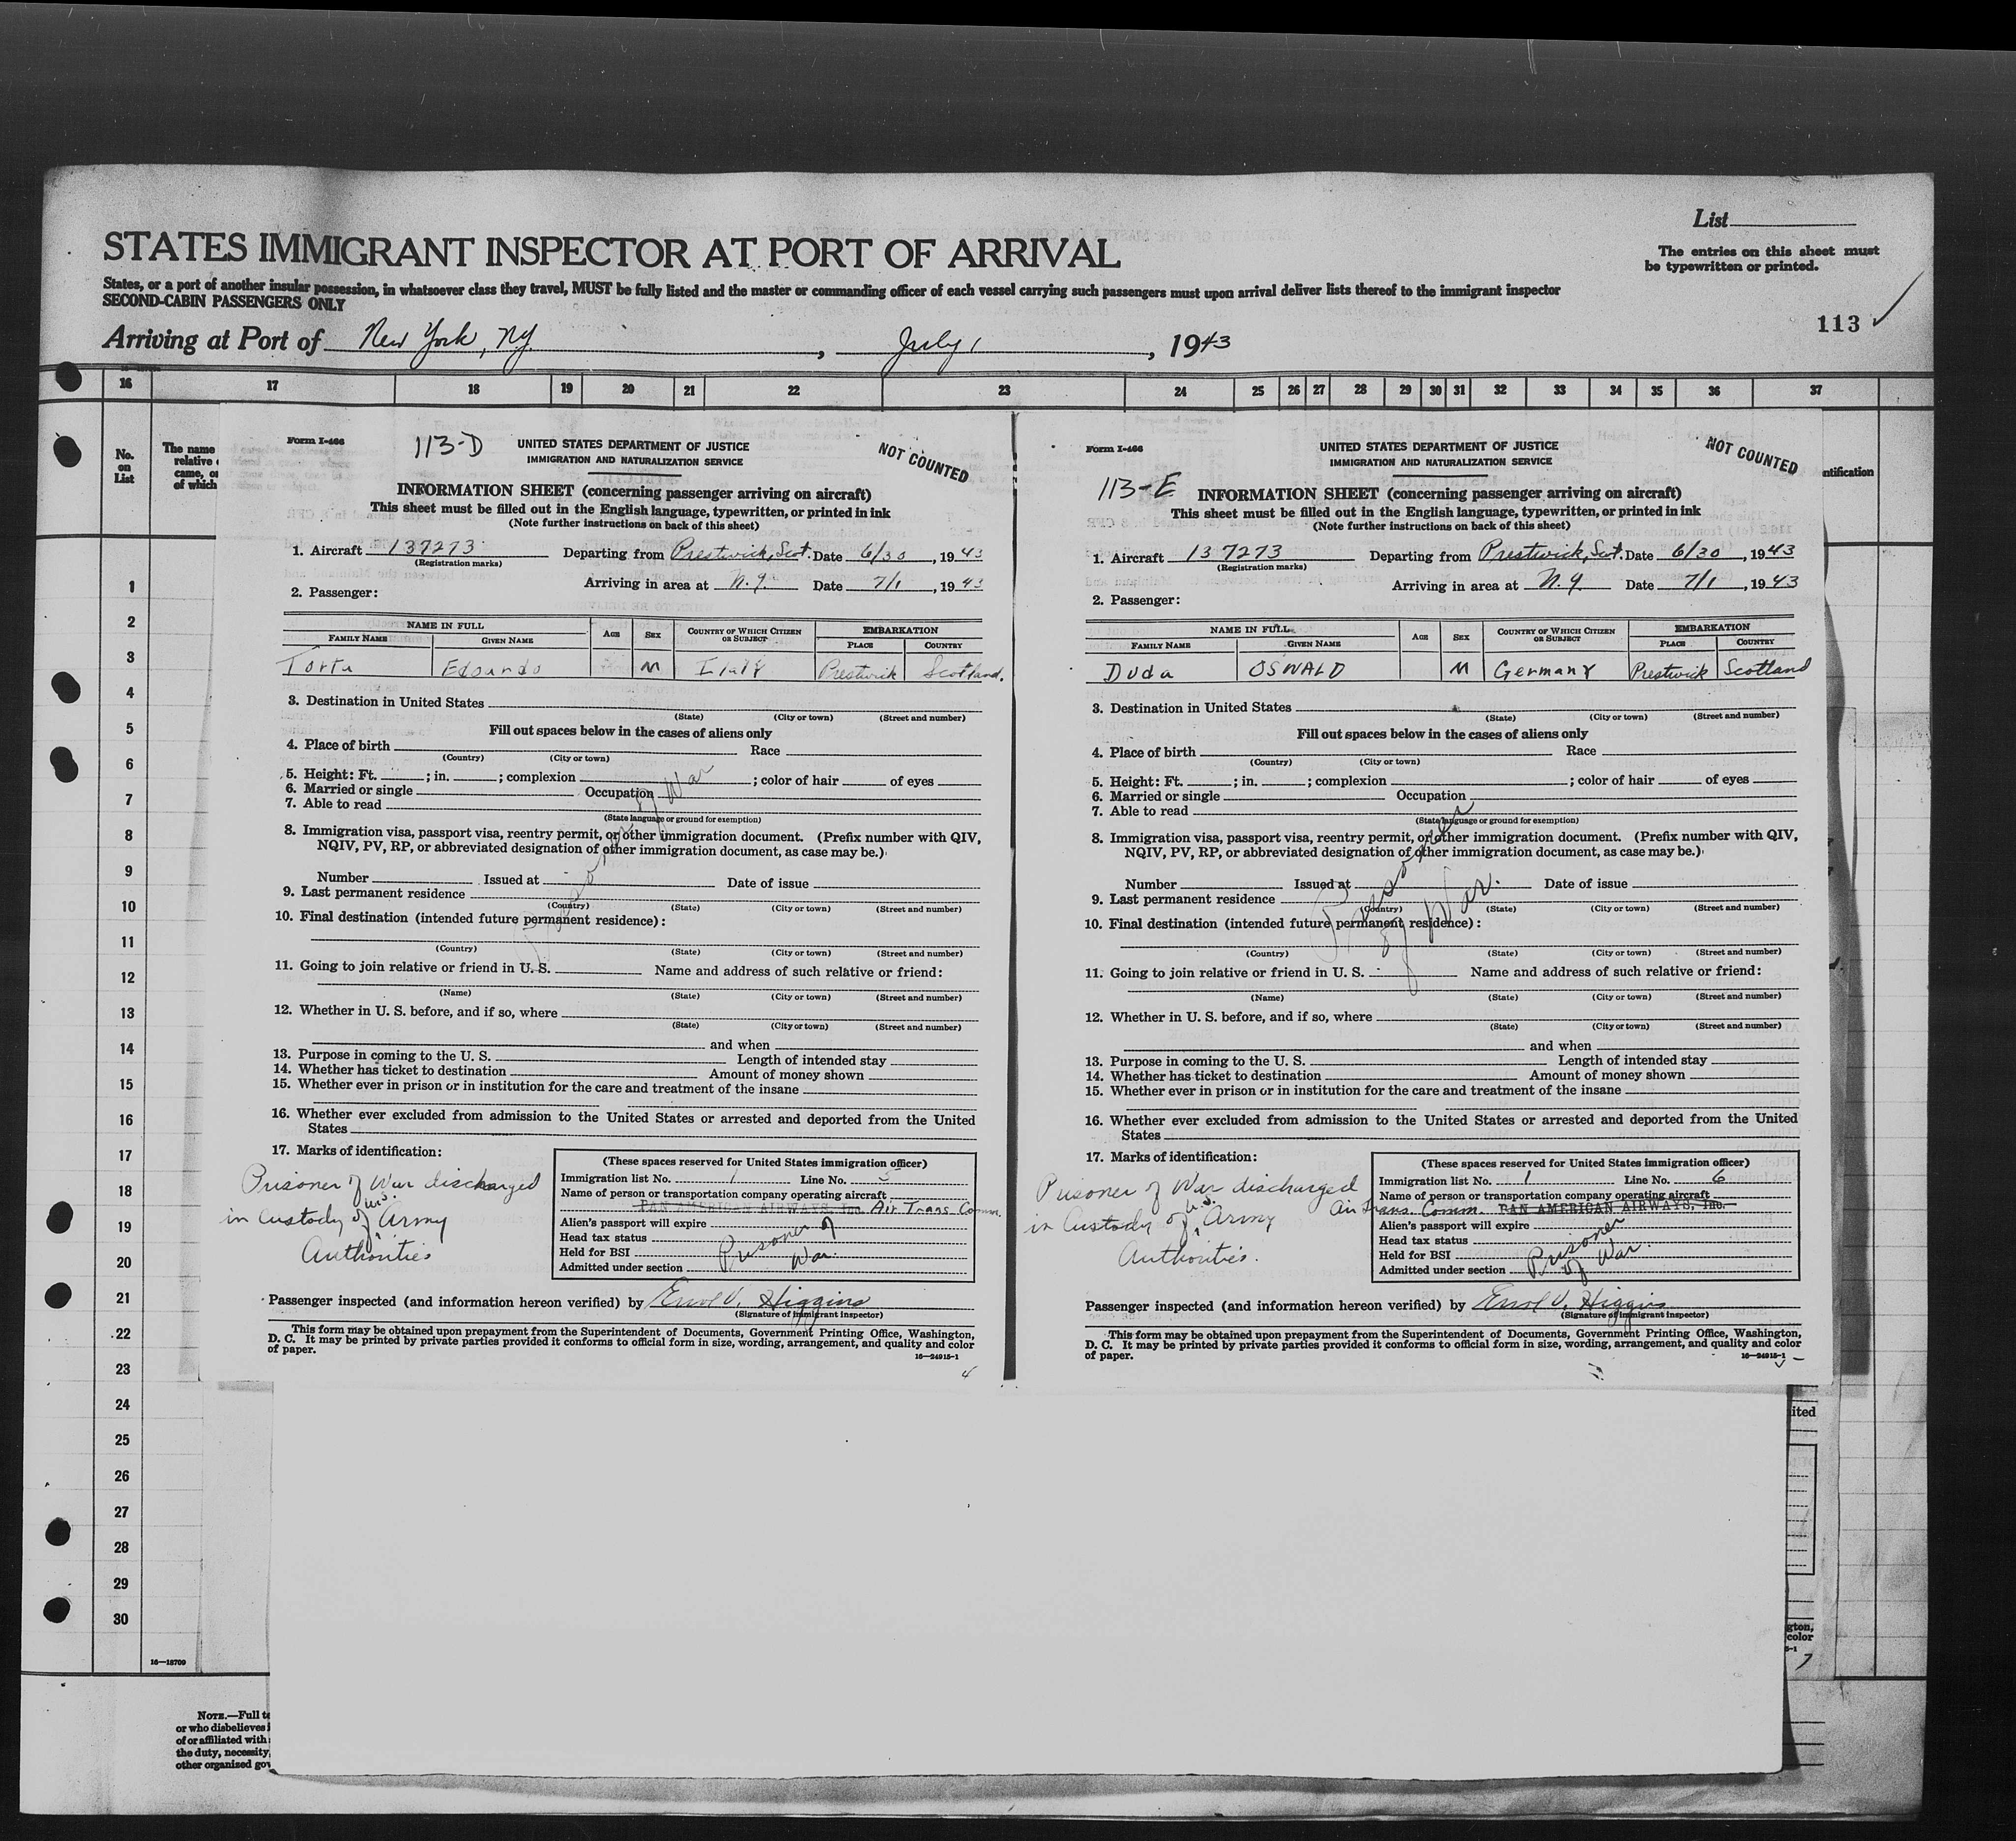 List
STATES IMMIGRANT INSPECTOR AT PORT OF ARRIVAL
The entries on this sheet must
be typewritten or printed.
States, or a port of another insular possession, in whatsoever class they travel, MUST be fully listed and the master or commanding officer of each vessel carrying such passengers must upon arrival deliver lists thereof to the immigrant inspector
SECOND-CABIN PASSENGERS ONLY
113 ✓
Arriving at Port of New York, NY, July 1, 1943
16 17 18 19 20 21 22 23 24 25 26 27 28 29 30 31 32 33 34 35 36 37
No.
on
List
The name
relative
came, or
of which
ntification
1
2
3
4
5
6
7
8
9
10
11
12
13
14
15
16
17
18
19
20
21
22
23
24
25
26
27
28
29
30
16—18709
Form I-466
113-D
UNITED STATES DEPARTMENT OF JUSTICE
IMMIGRATION AND NATURALIZATION SERVICE
NOT COUNTED
INFORMATION SHEET (concerning passenger arriving on aircraft)
This sheet must be filled out in the English language, typewritten, or printed in ink
(Note further instructions on back of this sheet)
1. Aircraft 137273 Departing from Prestwick, Scot. Date 6/30, 1943
(Registration marks)
Arriving in area at N.Y. Date 7/1, 1943
2. Passenger:
NAME IN FULL
AGE SEX COUNTRY OF WHICH CITIZEN OR SUBJECT EMBARKATION
FAMILY NAME GIVEN NAME PLACE COUNTRY
Edoardo M Italy Prestwick Scotland.
3. Destination in United States
(State) (City or town) (Street and number)
Fill out spaces below in the cases of aliens only
4. Place of birth Race
(Country) (City or town)
5. Height: Ft. ; in. ; complexion ; color of hair of eyes
6. Married or single Occupation
7. Able to read
(State language or ground for exemption)
8. Immigration visa, passport visa, reentry permit, or other immigration document. (Prefix number with QIV,
NQIV, PV, RP, or abbreviated designation of other immigration document, as case may be.)
Prisoner of War
Number Issued at Date of issue
9. Last permanent residence
(Country) (State) (City or town) (Street and number)
10. Final destination (intended future permanent residence):
(Country) (State) (City or town) (Street and number)
11. Going to join relative or friend in U. S. Name and address of such relative or friend:
(Name) (State) (City or town) (Street and number)
12. Whether in U. S. before, and if so, where
(State) (City or town) (Street and number)
and when
13. Purpose in coming to the U. S. Length of intended stay
14. Whether has ticket to destination Amount of money shown
15. Whether ever in prison or in institution for the care and treatment of the insane
16. Whether ever excluded from admission to the United States or arrested and deported from the United
States
17. Marks of identification:
Prisoner of War discharged
in Custody of U.S. Army
Authorities
(These spaces reserved for United States immigration officer)
Immigration list No. 1 Line No. 5
Name of person or transportation company operating aircraft
PAN AMERICAN AIRWAYS, Inc. Air Trans. Comm.
Alien's passport will expire
Head tax status
Held for BSI
Admitted under section
Prisoner of
War.
Passenger inspected (and information hereon verified) by Errol V. Higgins
(Signature of immigrant inspector)
This form may be obtained upon prepayment from the Superintendent of Documents, Government Printing Office, Washington,
D. C. It may be printed by private parties provided it conforms to official form in size, wording, arrangement, and quality and color
of paper.
16—24915-1
4
Form I-466
113-E
UNITED STATES DEPARTMENT OF JUSTICE
IMMIGRATION AND NATURALIZATION SERVICE
NOT COUNTED
INFORMATION SHEET (concerning passenger arriving on aircraft)
This sheet must be filled out in the English language, typewritten, or printed in ink
(Note further instructions on back of this sheet)
1. Aircraft 137273 Departing from Prestwick, Scot. Date 6/30, 1943
(Registration marks)
Arriving in area at N.Y. Date 7/1, 1943
2. Passenger:
NAME IN FULL
AGE SEX COUNTRY OF WHICH CITIZEN OR SUBJECT EMBARKATION
FAMILY NAME GIVEN NAME PLACE COUNTRY
Duda OSWALD M Germany Prestwick Scotland
3. Destination in United States
(State) (City or town) (Street and number)
Fill out spaces below in the cases of aliens only
4. Place of birth Race
(Country) (City or town)
5. Height: Ft. ; in. ; complexion ; color of hair of eyes
6. Married or single Occupation
7. Able to read
(State language or ground for exemption)
8. Immigration visa, passport visa, reentry permit, or other immigration document. (Prefix number with QIV,
NQIV, PV, RP, or abbreviated designation of other immigration document, as case may be.)
Prisoner
of War.
Number Issued at Date of issue
9. Last permanent residence
(Country) (State) (City or town) (Street and number)
10. Final destination (intended future permanent residence):
(Country) (State) (City or town) (Street and number)
11. Going to join relative or friend in U. S. Name and address of such relative or friend:
(Name) (State) (City or town) (Street and number)
12. Whether in U. S. before, and if so, where
(State) (City or town) (Street and number)
and when
13. Purpose in coming to the U. S. Length of intended stay
14. Whether has ticket to destination Amount of money shown
15. Whether ever in prison or in institution for the care and treatment of the insane
16. Whether ever excluded from admission to the United States or arrested and deported from the United
States
17. Marks of identification:
Prisoner of War discharged
in Custody of U.S. Army
Authorities.
(These spaces reserved for United States immigration officer)
Immigration list No. 1 Line No. 6
Name of person or transportation company operating aircraft
Air Trans. Comm. PAN AMERICAN AIRWAYS, Inc.
Alien's passport will expire
Head tax status
Held for BSI
Admitted under section
Prisoner
of War.
Passenger inspected (and information hereon verified) by Errol V. Higgins
(Signature of immigrant inspector)
This form may be obtained upon prepayment from the Superintendent of Documents, Government Printing Office, Washington,
D. C. It may be printed by private parties provided it conforms to official form in size, wording, arrangement, and quality and color
of paper.
16—24915-1
ited
gton,
color
5-1
7
NOTE.—Full te
or who disbelieves i
of or affiliated with
the duty, necessity,
other organized gov